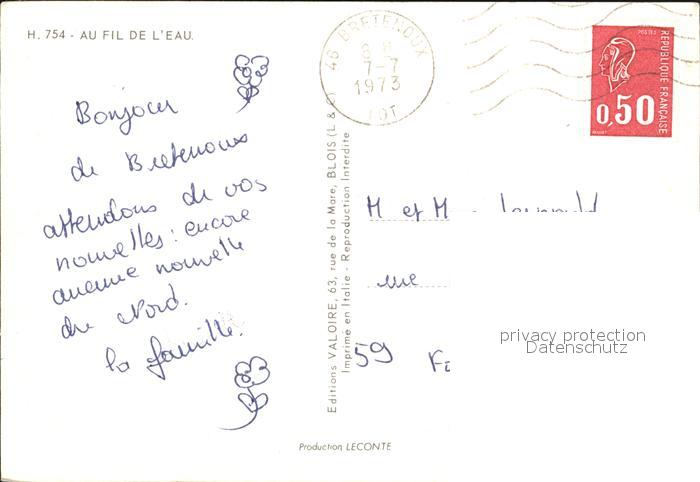 H. 754 - AU FIL DE L'EAU.
Bonjour
de Bretenoux
attendons de vos
nouvelles : encore
aucune nouvelle
du Nord.
la famille.
Editions VALOIRE, 63, rue de la Mare, BLOIS (L & C)
Imprimé en Italie - Reproduction Interdite
46 BRETENOUX
7-7
1973
LOT
POSTES
REPUBLIQUE FRANÇAISE
0,50
M et M
rue
59
privacy protection
Datenschutz
Production LECONTE